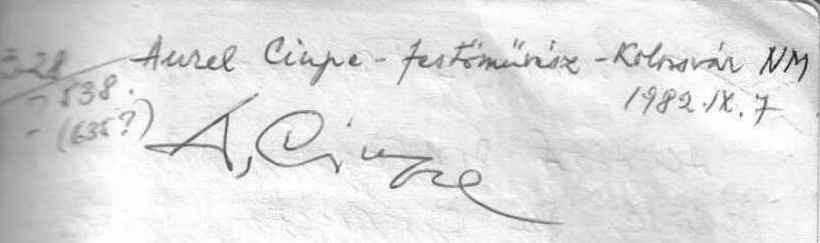 Aurel Ciupe - festőművész - Kolozsvár NM
328
1982.IX.7
- 538.
- (635?)
A, Ciupe